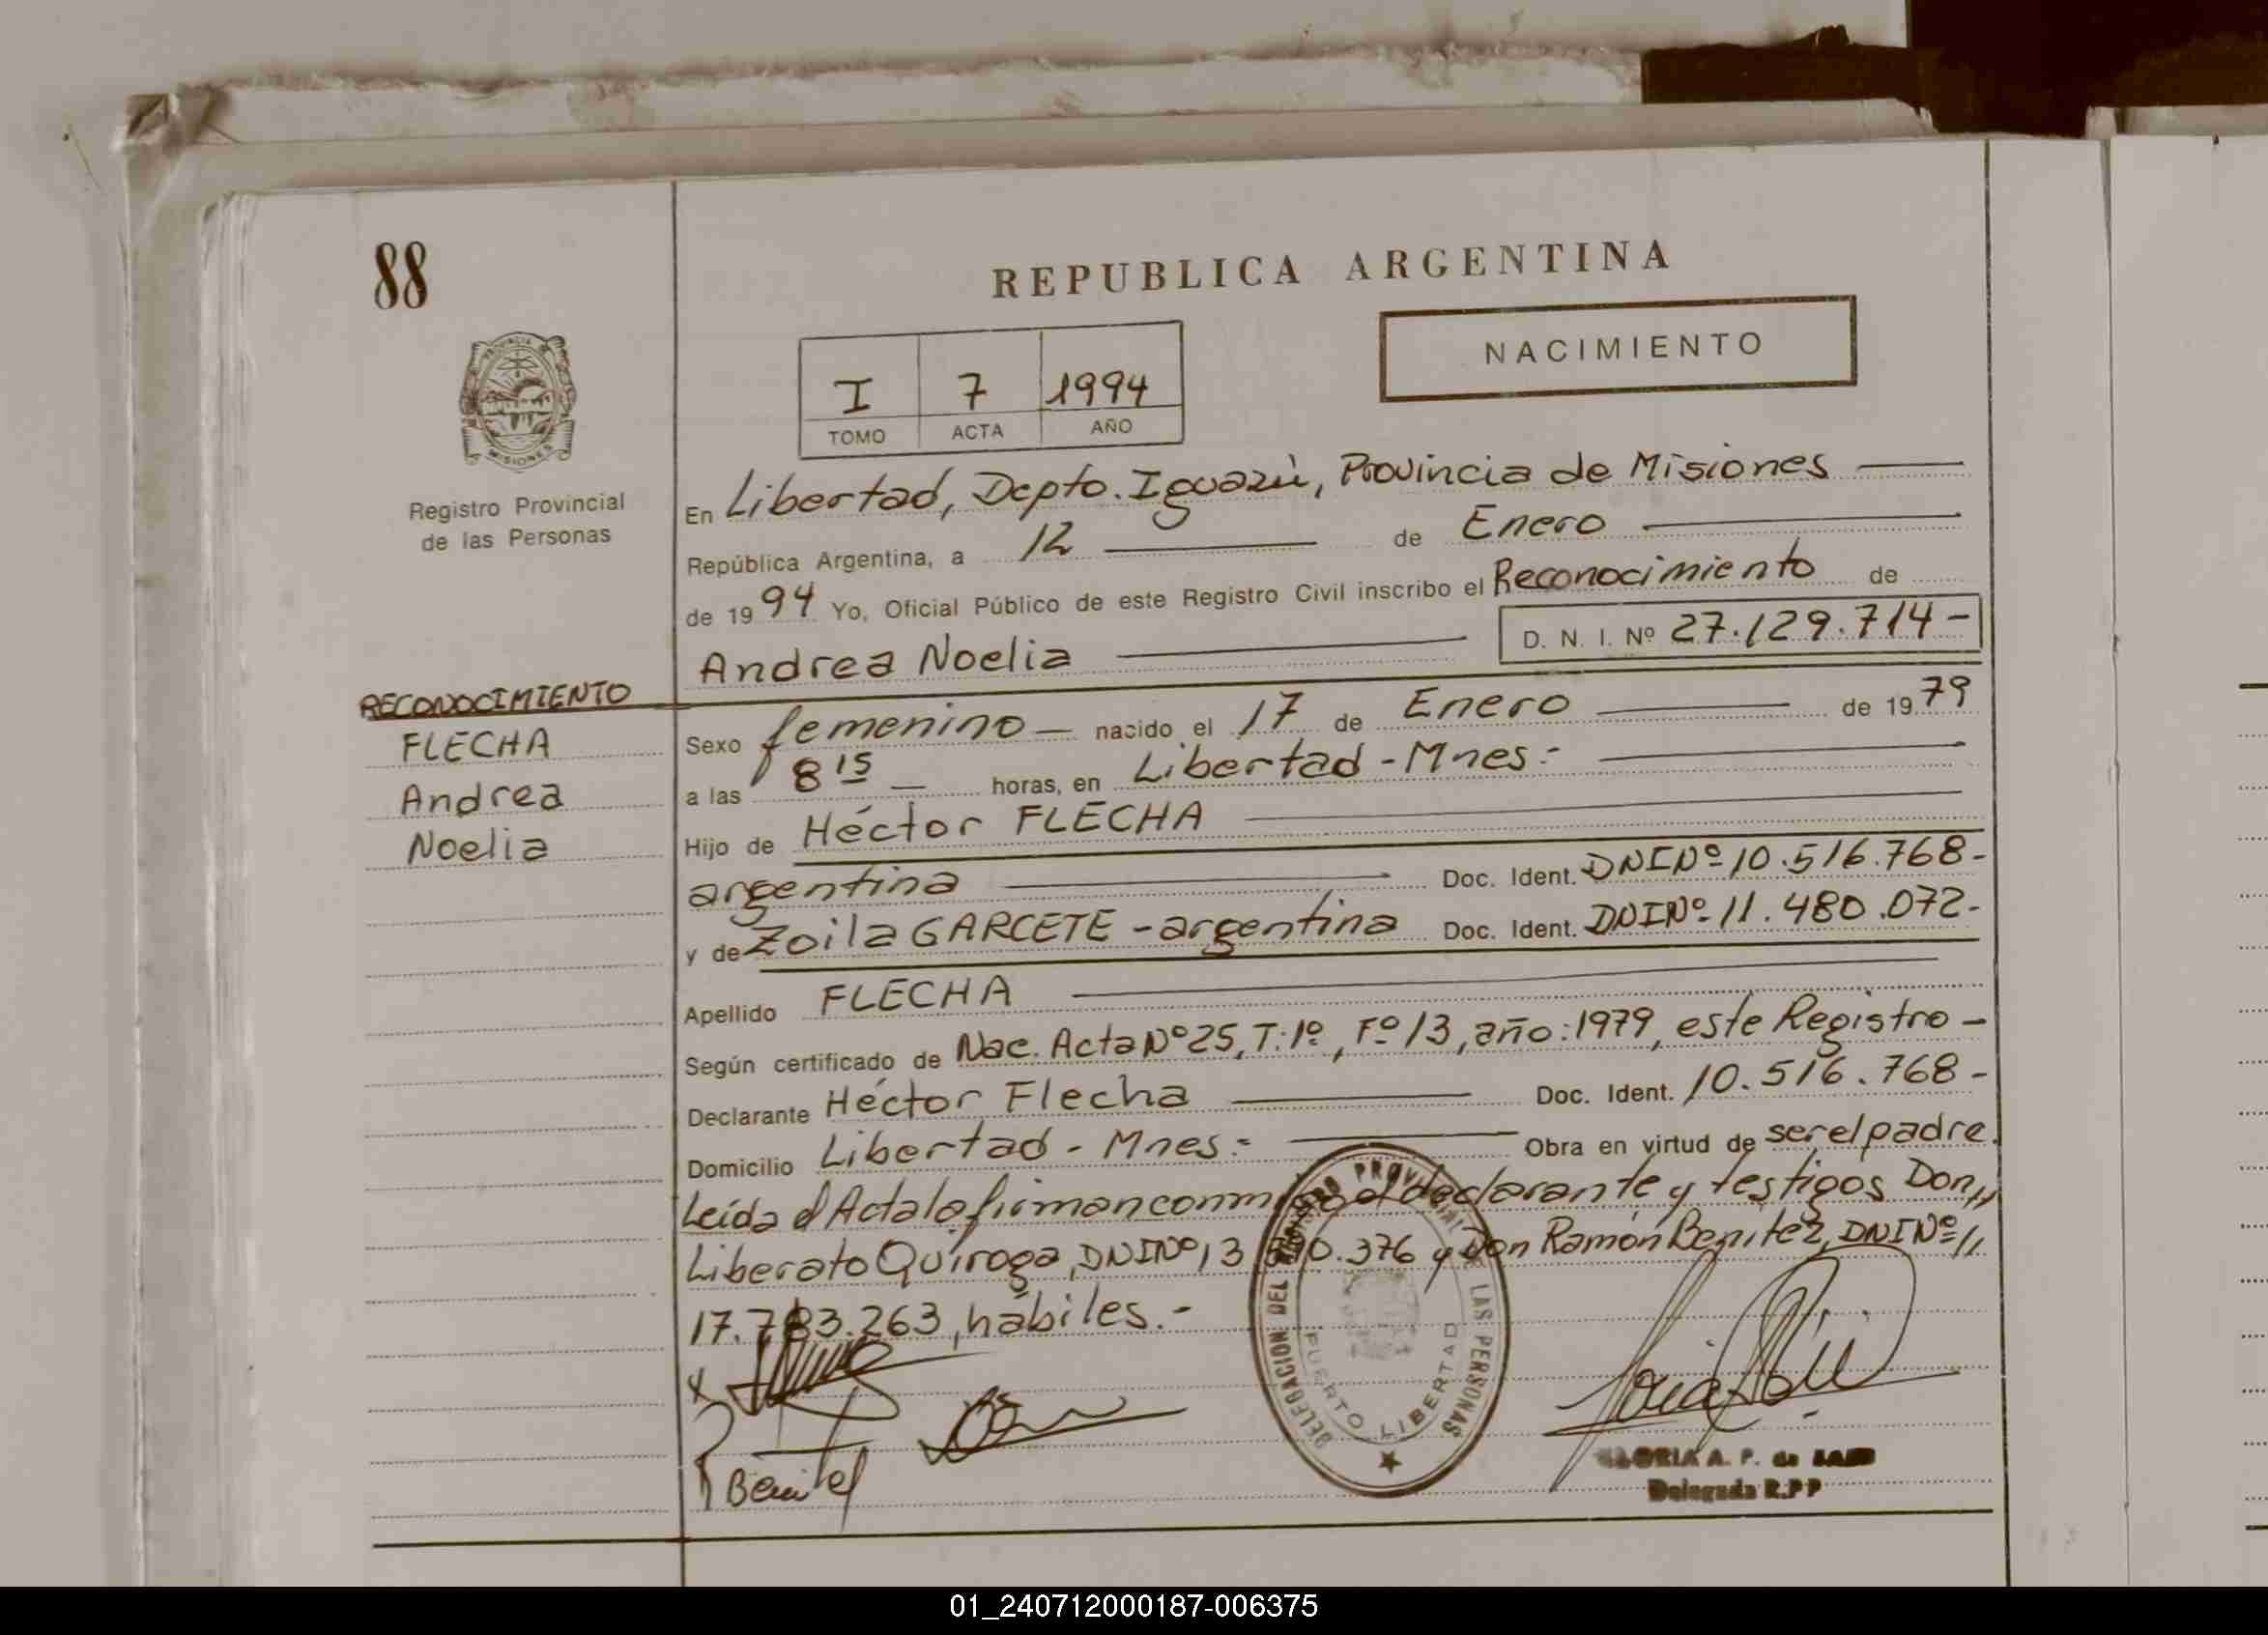 88
REPUBLICA ARGENTINA
NACIMIENTO
I 7 1994
TOMO ACTA AÑO
PROVINCIA DE
MISIONES
Registro Provincial
de las Personas
En Libertad, Depto. Iguazú, Provincia de Misiones
República Argentina, a 12 de Enero
de 1994 Yo, Oficial Público de este Registro Civil inscribo el Reconocimiento de
Andrea Noelia D. N. I. Nº 27.129.714-
RECONOCIMIENTO
FLECHA
Andrea
Noelia
Sexo femenino - nacido el 17 de Enero de 1979
a las 8 15 horas, en Libertad - Mnes.-
Hijo de Héctor FLECHA
argentina Doc. Ident. DNI Nº 10.516.768-
y de Zoila GARCETE - argentina Doc. Ident. DNI Nº 11.480.072-
Apellido FLECHA
Según certificado de Nac. Acta Nº 25, T: 1º, Fº 13, año: 1979, este Registro -
Declarante Héctor Flecha Doc. Ident. 10.516.768-
Domicilio Libertad - Mnes.- Obra en virtud de ser el padre.
Leída el Acta la firman conmigo el declarante y testigos Don,,
Liberato Quiroga, DNI Nº 13 .376 y Don Ramón Benitez, DNI Nº,,
17.783.263, hábiles.-
x
Benitez
DELEGACION DEL REGISTRO PROVINCIAL DE LAS PERSONAS
PUERTO LIBERTAD
GLORIA A. P. de
Delegada R.P.P
01_240712000187-006375